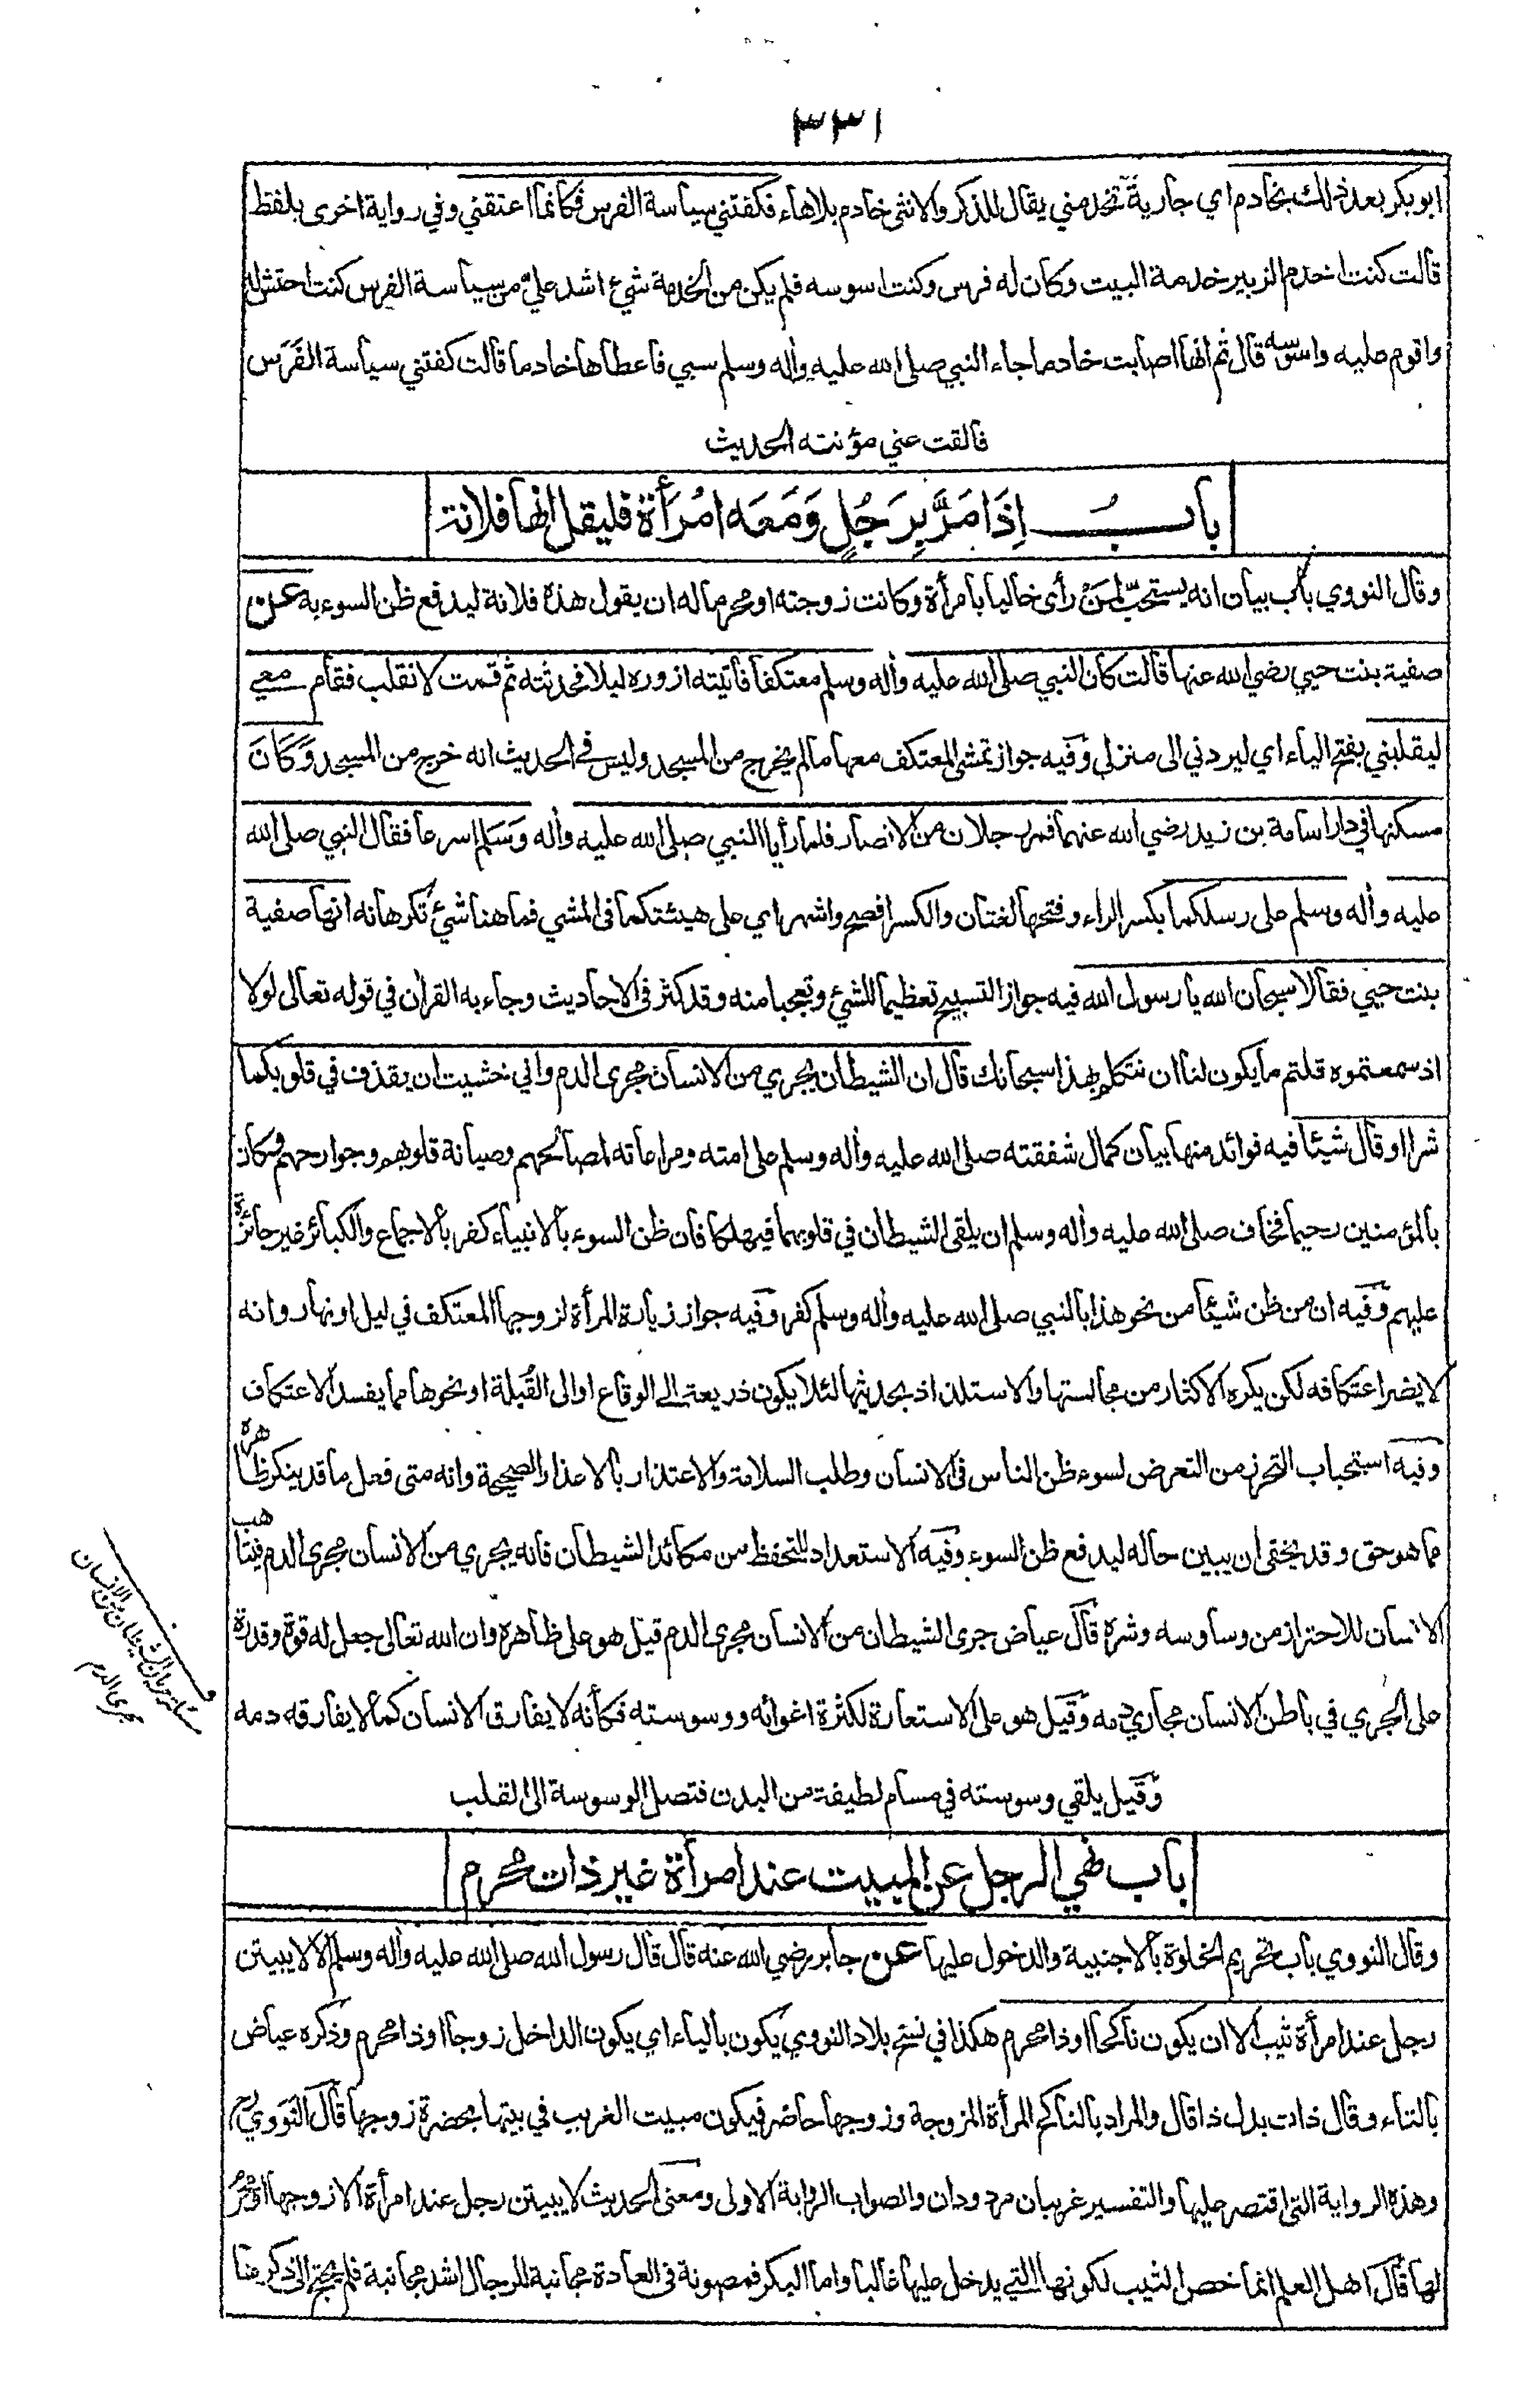 ٣٣١
ابو بكر بعد ذلك بخادم اي جارية تخدمني يقال للذكر والانثى خادم بلا هاء فكفتني سياسة الفرس فكانما اعتقني وفي رواية اخرى بلفظ
قالت كنت اخدم الزبير خدمة البيت وكان له فرس وكنت اسوسه فلم يكن من الخدمة شيء اشد علي من سياسة الفرس كنت احتش له
واقوم عليه واسوسه قال ثم انها اصابت خادما جاء النبي صلى الله عليه واٰله وسلم سبي فاعطاها خادما قالت كفتني سياسة الفَرَس
فالقت عني مؤنته الحديث
بابُ اِذَا مَرَّ بِرَجُلٍ وَمَعَه امْرَأة فليقل انها فلانة
وقال النووي باب بيان انه يستحبّ لمَنْ رأى خاليا بامرأة وكانت زوجته او محرما له ان يقول هذه فلانة ليدفع ظن السوء به عن
صفية بنت حيي رضي الله عنها قالت كان النبي صلى الله عليه واٰله وسلم معتكفا فأتيته ازوره ليلا فحدثته ثم قمت لانقلب فقام معي
ليقلبني بفتح الياء اي ليردني الى منزلي وفيه جواز تمشي المعتكف معها ما لم يخرج من المسجد وليس في الحديث انه خرج من المسجد وَكَانَ
مسكنها في دار اسامة بن زيد رضي الله عنهما فمر رجلان من الانصار فلما رأيا النبي صلى الله عليه واٰله وَسَلم اسرعا فقال النبي صلى الله
عليه واٰله وسلم على رسلكما بكسر الراء وفتحها لغتان والكسر افصح واشهر اي على هيئتكما في المشي فما هنا شيء تكرهانه انها صفية
بنت حيي فقالا سبحان الله يا رسول الله فيه جواز التسبيح تعظيما للشيء وتعجبا منه وقد كثر في الاحاديث وجاء به القراٰن في قوله تعالى لولا
اذ سمعتموه قلتم ما يكون لنا ان نتكلم بهذا سبحانك قال ان الشيطان يجري من الانسان مجرى الدم واني خشيت ان يقذف في قلوبكما
شرا او قال شيئا فيه فوائد منها بيان كمال شفقته صلى الله عليه واٰله وسلم على امته ومراعاته لمصالحهم وصيانة قلوبهم وجوارحهم وكان
بالمؤمنين رحيما فخاف صلى الله عليه واٰله وسلم ان يلقى الشيطان في قلوبهما فيهلكا فان ظن السوء بالانبياء كفر بالاجماع والكبائر غير جائزة
عليهم وفيه ان من ظن شيئا من نحو هذا بالنبي صلى الله عليه واٰله وسلم كفر وفيه جواز زيارة المرأة لزوجها المعتكف في ليل او نهار وانه
لا يضر اعتكافه لكن يكره الاكثار من مجالستها والاستلذاذ بحديثها لئلا يكون ذريعة الى الوقاع او الى القُبلة او نحوها مما يفسد الاعتكاف
وفيه استحباب التحرز من التعرض لسوء ظن الناس في الانسان وطلب السلامة والاعتذار بالاعذار الصحيحة وانه متى فعل ما قد ينكر ظاهره
مما هو حق وقد يخفى ان يبين حاله ليدفع ظن السوء وفيه الاستعداد للتحفظ من مكائد الشيطان فانه يجري من الانسان مجرى الدم فيتاهب
الانسان للاحتراز من وساوسه وشره قال عياض جرى الشيطان من الانسان مجرى الدم قيل هو على ظاهره وان الله تعالى جعل له قوة وقدرة
على الجري في باطن الانسان مجاري دمه وقيل هو على الاستعارة لكثرة اغوائه ووسوسته فكأنه لا يفارق الانسان كما لا يفارقه دمه
وقيل يلقي وسوسته في مسام لطيفة من البدن فتصل الوسوسة الى القلب
باب نهي الرجل عن المبيت عند امرأة غير ذات محرم
وقال النووي باب تحريم الخلوة بالاجنبية والدخول عليها عن جابر رضي الله عنه قال قال رسول الله صلى الله عليه واٰله وسلم الا لا يبيتن
رجل عند امرأة ثيب الا ان يكون ناكحا او ذا محرم هكذا في نسخ بلاد النووي يكون بالياء اي يكون الداخل زوجا او ذا محرم وذكره عياض
بالتاء وقال ذات بدل ذا قال والمراد بالناكح المرأة المزوجة وزوجها حاضر فيكون مبيت الغريب في بيتها بحضرة زوجها قال النووي رح
وهذه الرواية التي اقتصر عليها والتفسير غريبان مردودان والصواب الرواية الاولى ومعنى الحديث لا يبيتن رجل عند امرأة الا زوجها او محرم
لها قال اهل العلم انما خص الثيب لكونها التي يدخل عليها غالبا واما البكر فمصونة في العادة مجانبة للرجال اشد مجانبة فلم يحتج الى ذكرها
ان الشيطان من الانسان
مجرى الدم